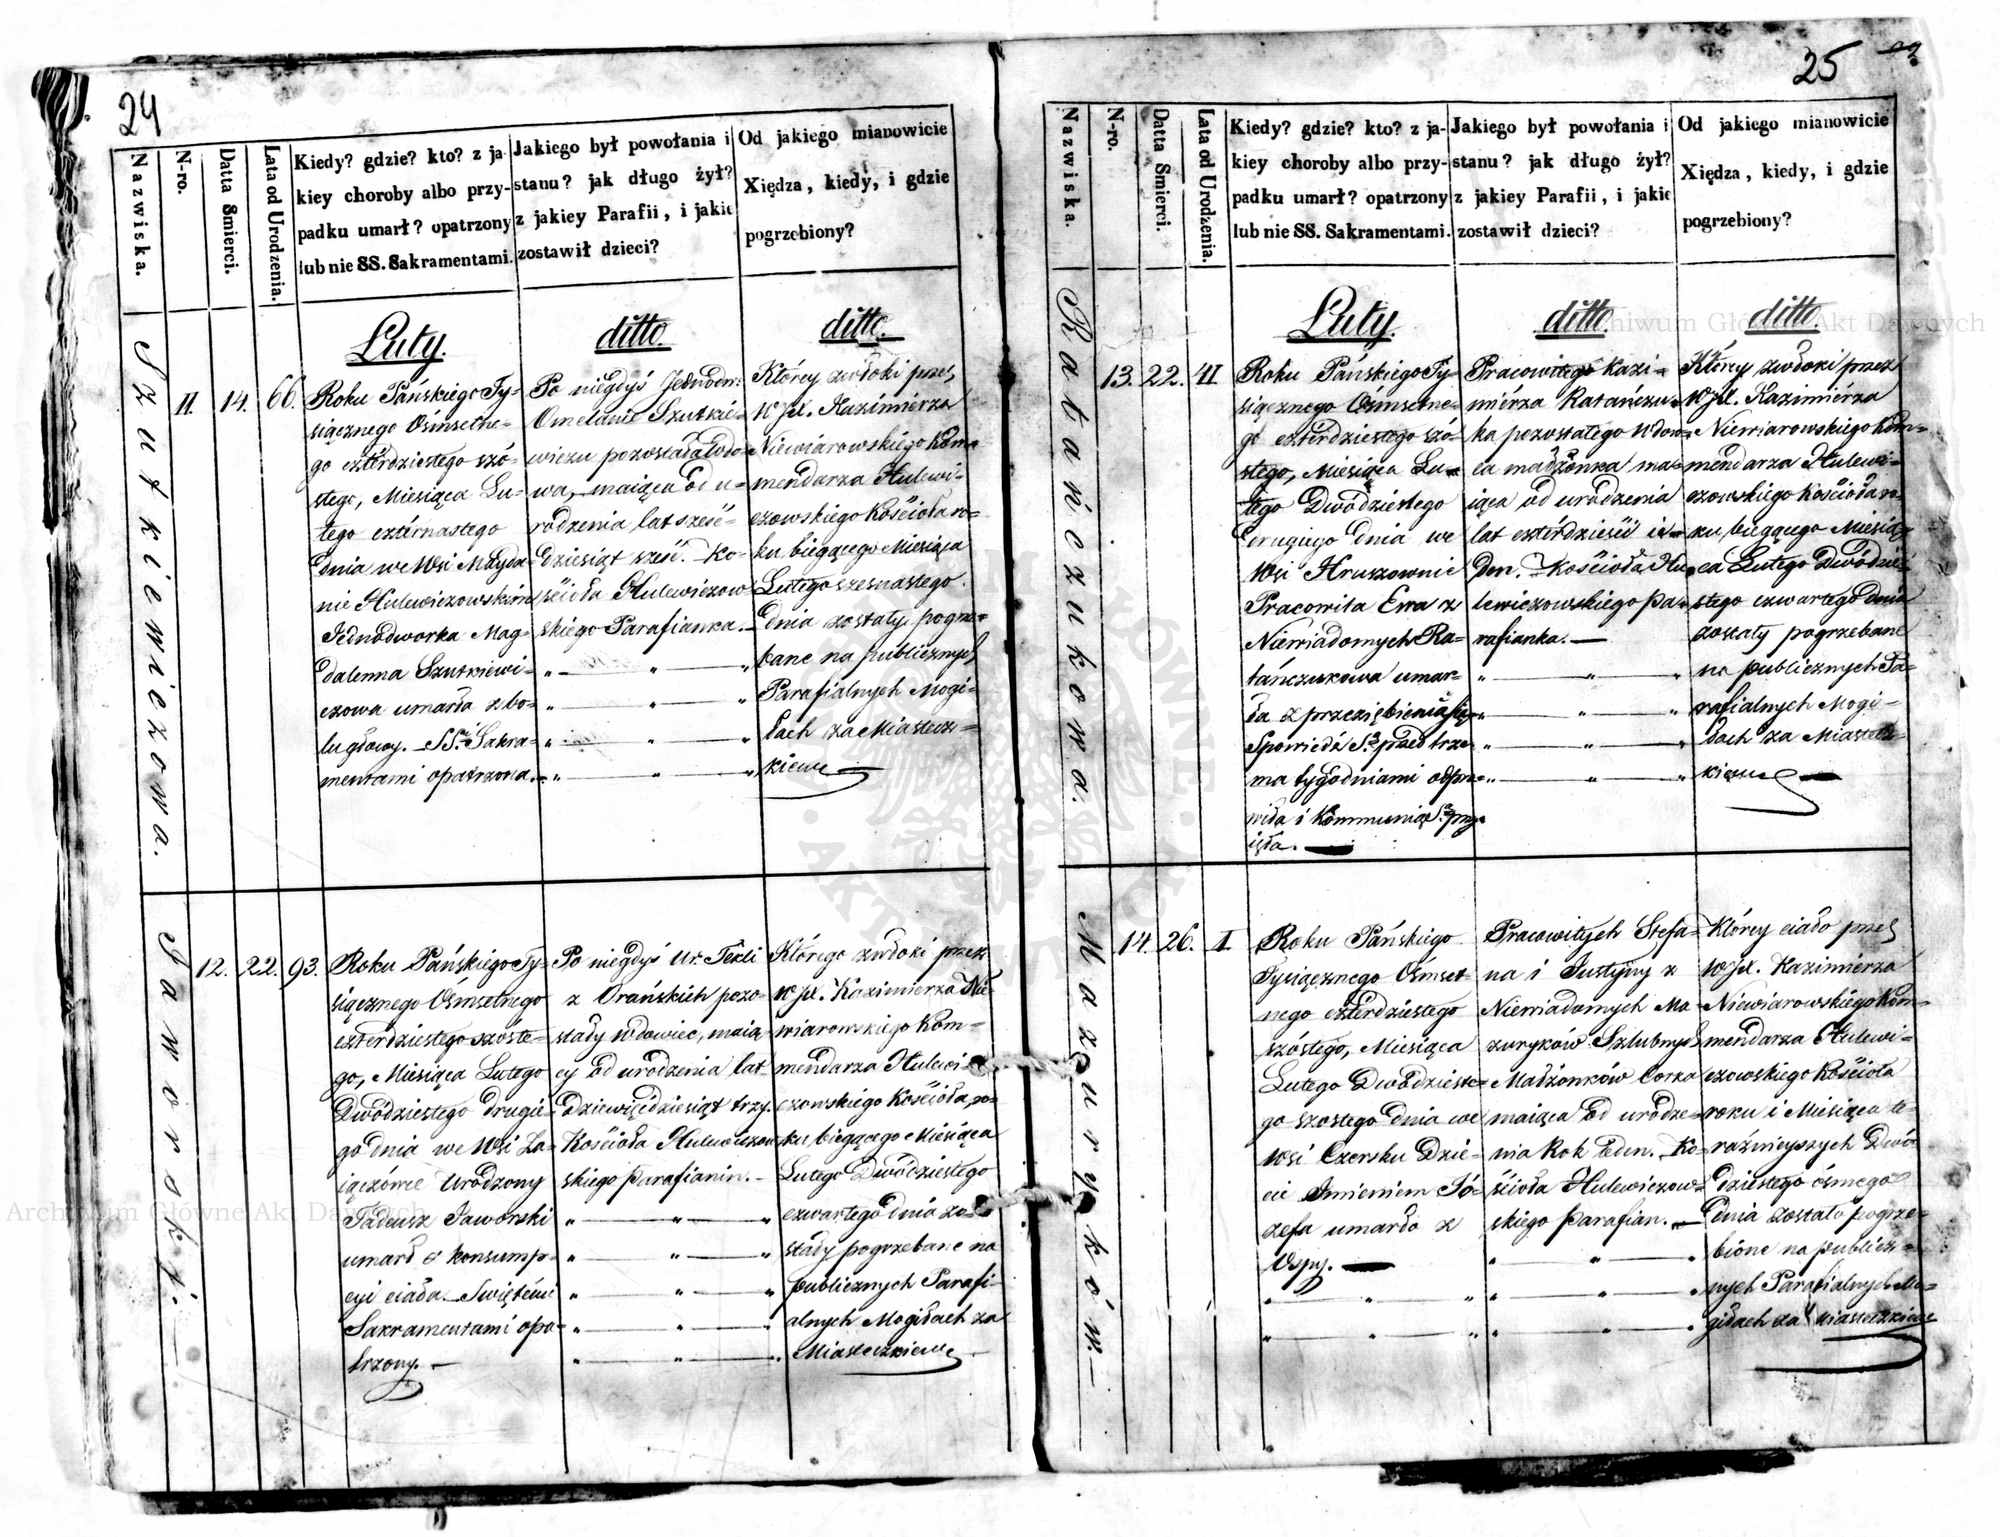 24
Nazwiska.
N-ro.
Datta Smierci.
Lata od Urodzenia.
Kiedy? gdzie? kto? z ja-
kiey choroby albo przy-
padku umarł? opatrzony
lub nie SS. Sakramentami.
Jakiego był powołania i
stanu? jak długo żył?
z jakiey Parafii, i jakie
zostawił dzieci?
Od jakiego mianowicie
Xiędza, kiedy, i gdzie
pogrzebiony?
Szutkiewiczowa.
11.
14.
66.
Luty.
Roku Pańskiego Ty-
siącznego Ośmsetne-
go czterdziestego szó-
stego, Miesiąca Lu-
tego czternastego
dnia we Wsi Mayda-
nie Hulewiczowskim
Jednodworka Mag-
dalenna Szutkiewi-
czowa umarła z bo-
lu głowy. SS. Sakra-
mentami opatrzona.
ditto.
Po niegdyś Jednodw:
Omelanie Szutkie-
wiczu pozostała Wdo-
wa, maiąca od u-
rodzenia lat sześć-
dziesiąt sześć. Ko-
ścioła Hulewiczow-
skiego Parafianka.
ditto.
Którey zwłoki przez
WJX. Kazimierza
Niewiarowskiego Kom-
mendarza Hulewi-
czowskiego Kościoła ro-
ku biegącego Miesiąca
Lutego szesnastego
dnia zostały pogrze-
bane na publicznych
Parafialnych Mogi-
łach za Miastecz-
kiem
Jaworski.
12.
22.
93.
Roku Pańskiego Ty-
siącznego Ośmsetnego
czterdziestego szóste-
go, Miesiąca Lutego
Dwódziestego drugie-
go dnia we Wsi Za-
iączówce Urodzony
Tadeusz Jaworski
umarł z konsump-
cyi ciała. Świętemi
Sakramentami opa-
trzony.
Po niegdyś Ur. Tekli
z Orańskich pozo-
stały Wdowiec, maią-
cy od urodzenia lat
dziewięćdziesiąt trzy.
Kościoła Hulewiczow-
skiego Parafianin.
Którego zwłoki przez
WJX. Kazimierza Nie-
wiarowskiego Kom-
mendarza Hulewi-
czowskiego Kościoła, ro-
ku biegącego Miesiąca
Lutego Dwódziestego
czwartego dnia zo-
stały pogrzebane na
publicznych Parafi-
alnych Mogiłach za
Miasteczkiem
25
Nazwiska.
N-ro.
Datta Smierci.
Lata od Urodzenia.
Kiedy? gdzie? kto? z ja-
kiey choroby albo przy-
padku umarł? opatrzony
lub nie SS. Sakramentami.
Jakiego był powołania i
stanu? jak długo żył?
z jakiey Parafii, i jakie
zostawił dzieci?
Od jakiego mianowicie
Xiędza, kiedy, i gdzie
pogrzebiony?
Ratańczukowa.
13.
22.
41
Luty.
Roku Pańskiego Ty-
siącznego Ośmsetne-
go czterdziestego szó-
stego, Miesiąca Lu-
tego Dwódziestego
drugiego dnia we
Wsi Hruszownie
Pracowita Ewa z
Niewiadomych Ra-
tańczukowa umar-
ła z przeziębienia się
Spowiedź S. przed trze-
ma tygodniami odpra-
wiła i Kommunią S. przy-
ięła.
ditto.
Pracowitego Kazi-
miérza Ratańczu-
ka pozostałego Wdow-
ca małżonka ma-
iąca od urodzenia
lat czterdzieści ie-
den. Kościoła Hu-
lewiczowskiego Pa-
rafianka.
ditto.
Którey zwłoki przez
WJX. Kazimiérza
Niewiarowskiego Kom-
mendarza Hulewi-
czowskiego Kościoła ro-
ku biegącego Miesią-
ca Lutego Dwódzie-
stego czwartego dnia
zostały pogrzebane
na publicznych Pa-
rafialnych Mogi-
łach za Miastecz-
kiem
Mazuryków.
14.
26.
1.
Roku Pańskiego
Tysiącznego Ośmset-
nego czterdziestego
szóstego, Miesiąca
Lutego Dwódzieste-
go szostego dnia we
Wsi Czersku Dzie-
cie Imieniem Jó-
zefa umarło z
Ospy.
Pracowitych Stefa-
na i Justyny z
Niewiadomych Ma-
zuryków Szlubnych
Małżonków Corka
maiąca od urodze-
nia Rok ieden. Ko-
ścioła Hulewiczow-
skiego Parafian.
Którey ciało przez
WJX. Kazimierza
Niewiarowskiego Kom-
mendarza Hulewi-
czowskiego Kościoła
roku i Miesiąca te-
raźnieyszych Dwó-
dziestego ósmego
dnia zostało pogrze-
bione na publicz-
nych Parafialnych Mo-
giłach za Miasteczkiem
Archiwum Główne Akt Dawnych
Archiwum Główne Akt Dawnych